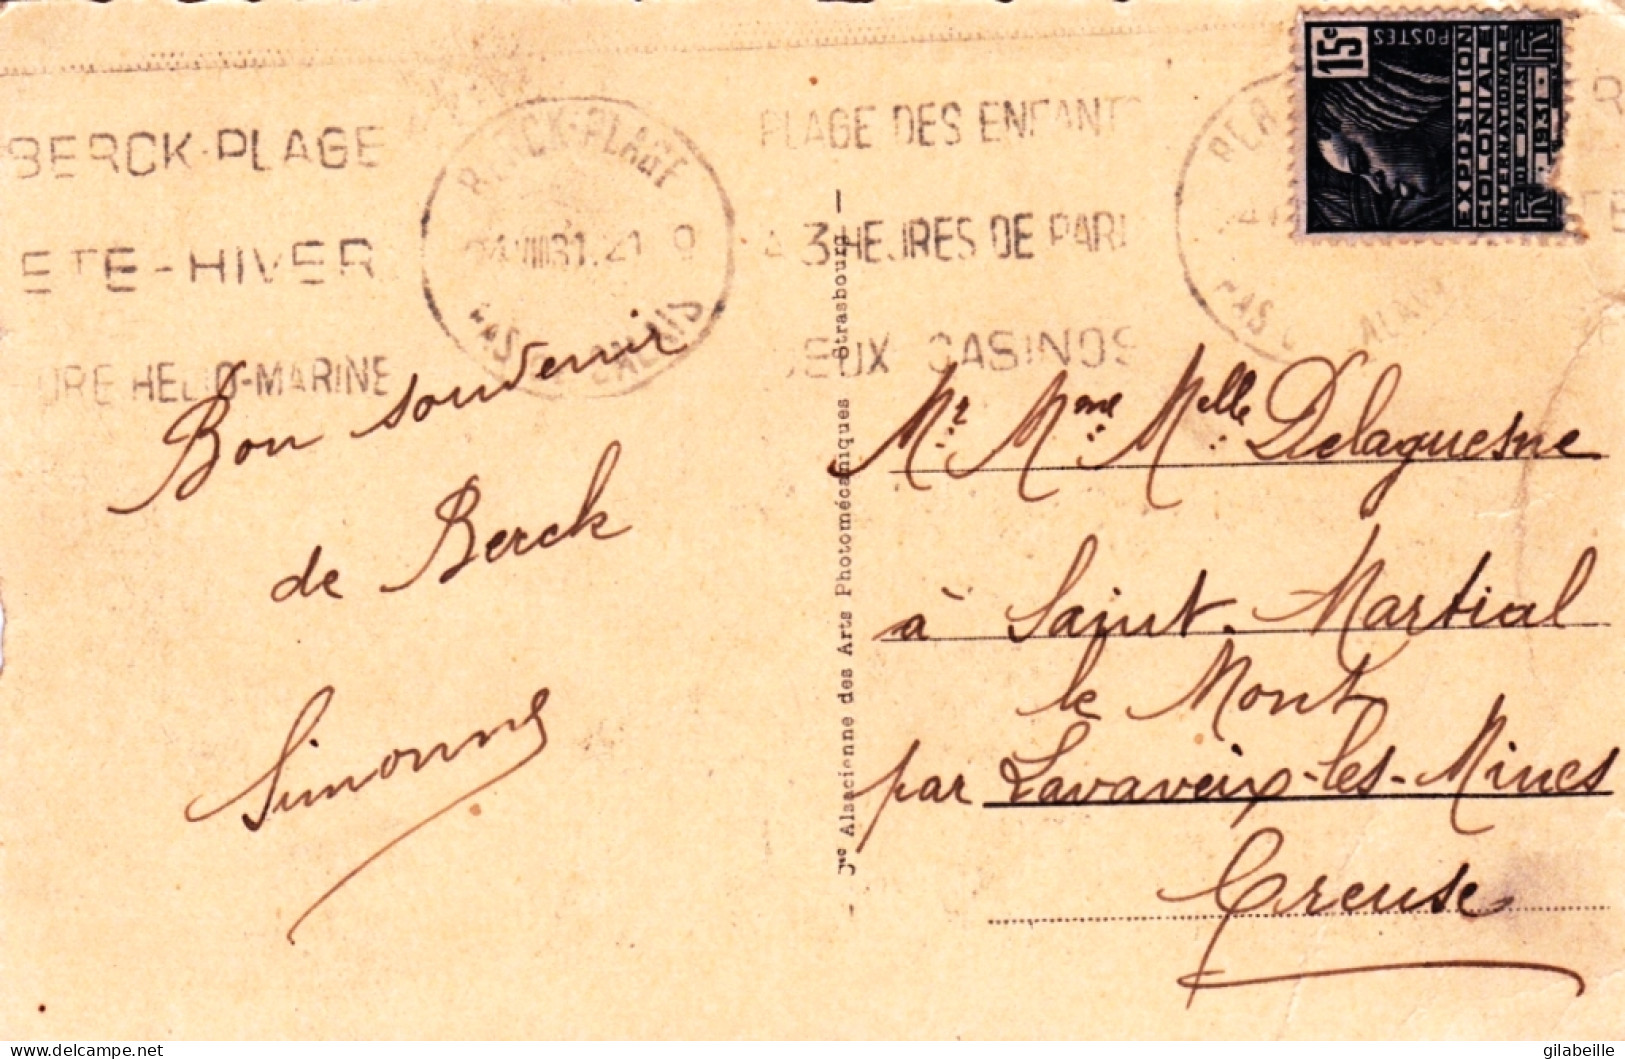 BERCK-PLAGE
ETE-HIVER
URE HELIO-MARINE
BERCK-PLAGE
VIII 31
PAS DE CALAIS
PLAGE DES ENFANTS
A 3 HEURES DE PARI
DEUX CASINOS
15c
POSTES
EXPOSITION
COLONIALE
INTERNATIONALE
DE PARIS
1931
Bon souvenir
de Berck
Simonne
Alsacienne des Arts Photomécaniques Strasbourg
Mr. Mme. Melle. Delaguesne
à Saint. Martial
le Mont
par Lavaveix-les-Mines
Creuse
delcampe.net
gilabeille